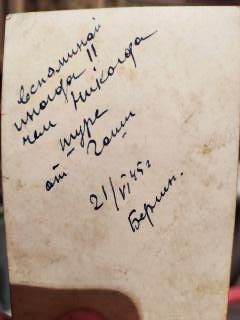 вспоминай
иногда !!
чем Никогда
шуре
от
21/VI 45 г
Берлин.